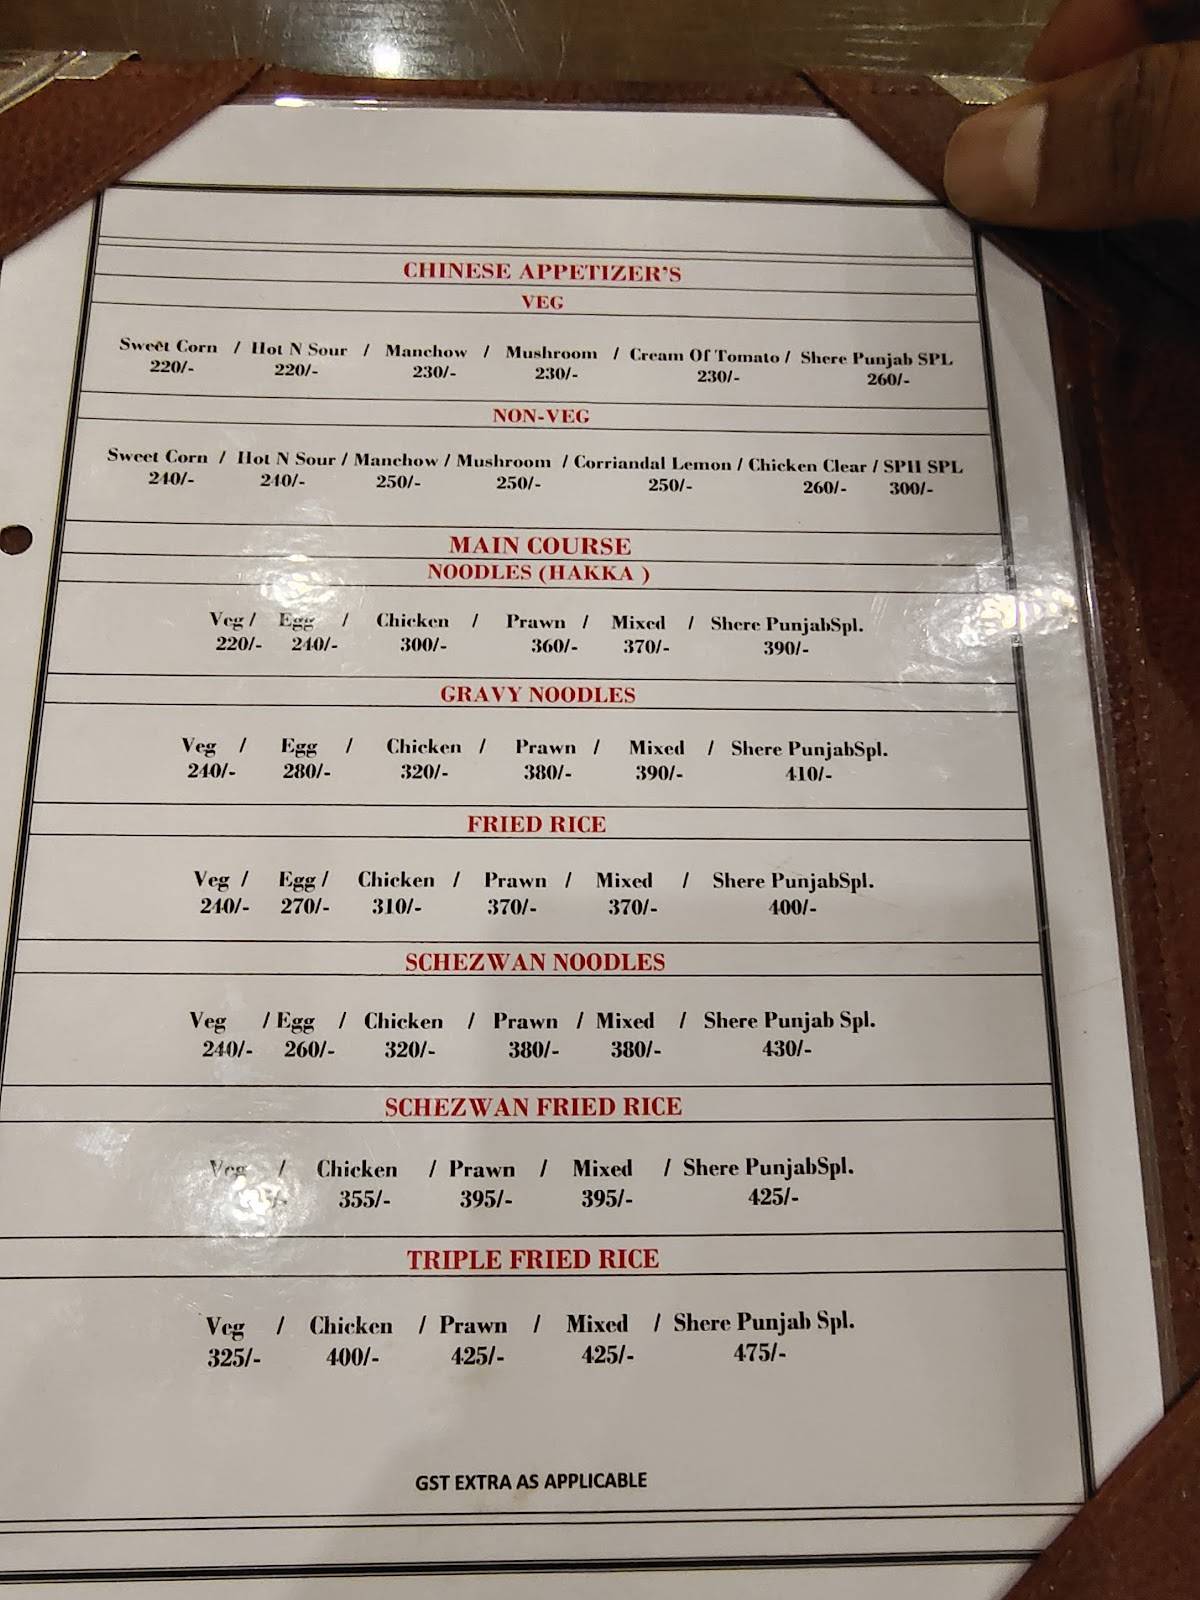 CHINESE APPETIZER'S
VEG
Sweet Corn / Hot N Sour / Manchow / Mushroom / Cream Of Tomato / Shere Punjab SPL
220/- 220/- 230/- 230/- 230/- 260/-
NON-VEG
Sweet Corn / Hot N Sour / Manchow / Mushroom / Corriandal Lemon / Chicken Clear / SPH SPL
240/- 240/- 250/- 250/- 250/- 260/- 300/-
MAIN COURSE
NOODLES (HAKKA )
Veg / Egg / Chicken / Prawn / Mixed / Shere PunjabSpl.
220/- 240/- 300/- 360/- 370/- 390/-
GRAVY NOODLES
Veg / Egg / Chicken / Prawn / Mixed / Shere PunjabSpl.
240/- 280/- 320/- 380/- 390/- 410/-
FRIED RICE
Veg / Egg / Chicken / Prawn / Mixed / Shere PunjabSpl.
240/- 270/- 310/- 370/- 370/- 400/-
SCHEZWAN NOODLES
Veg / Egg / Chicken / Prawn / Mixed / Shere Punjab Spl.
240/- 260/- 320/- 380/- 380/- 430/-
SCHEZWAN FRIED RICE
Veg / Chicken / Prawn / Mixed / Shere PunjabSpl.
355/- 395/- 395/- 425/-
TRIPLE FRIED RICE
Veg / Chicken / Prawn / Mixed / Shere Punjab Spl.
325/- 400/- 425/- 425/- 475/-
GST EXTRA AS APPLICABLE